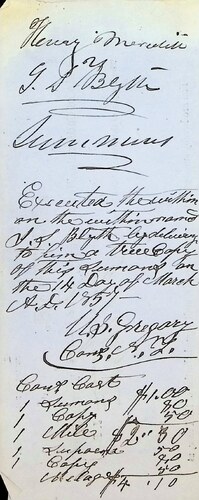 Henry Meredith
vs
J. S. Blyth
Summons
Executed the within
on the within named
J. S. Blyth by delivery
to him a true Copy
of this Sumons on
the 14 Day of March
A.D. 1857
U. S. Gregory
Cons.
Cons Cost
1 Sumons $1.00
1 Copy 50
1 Mile 50
$2.30
1 Supoena
1 Copy 50
Milage 50
$4.10